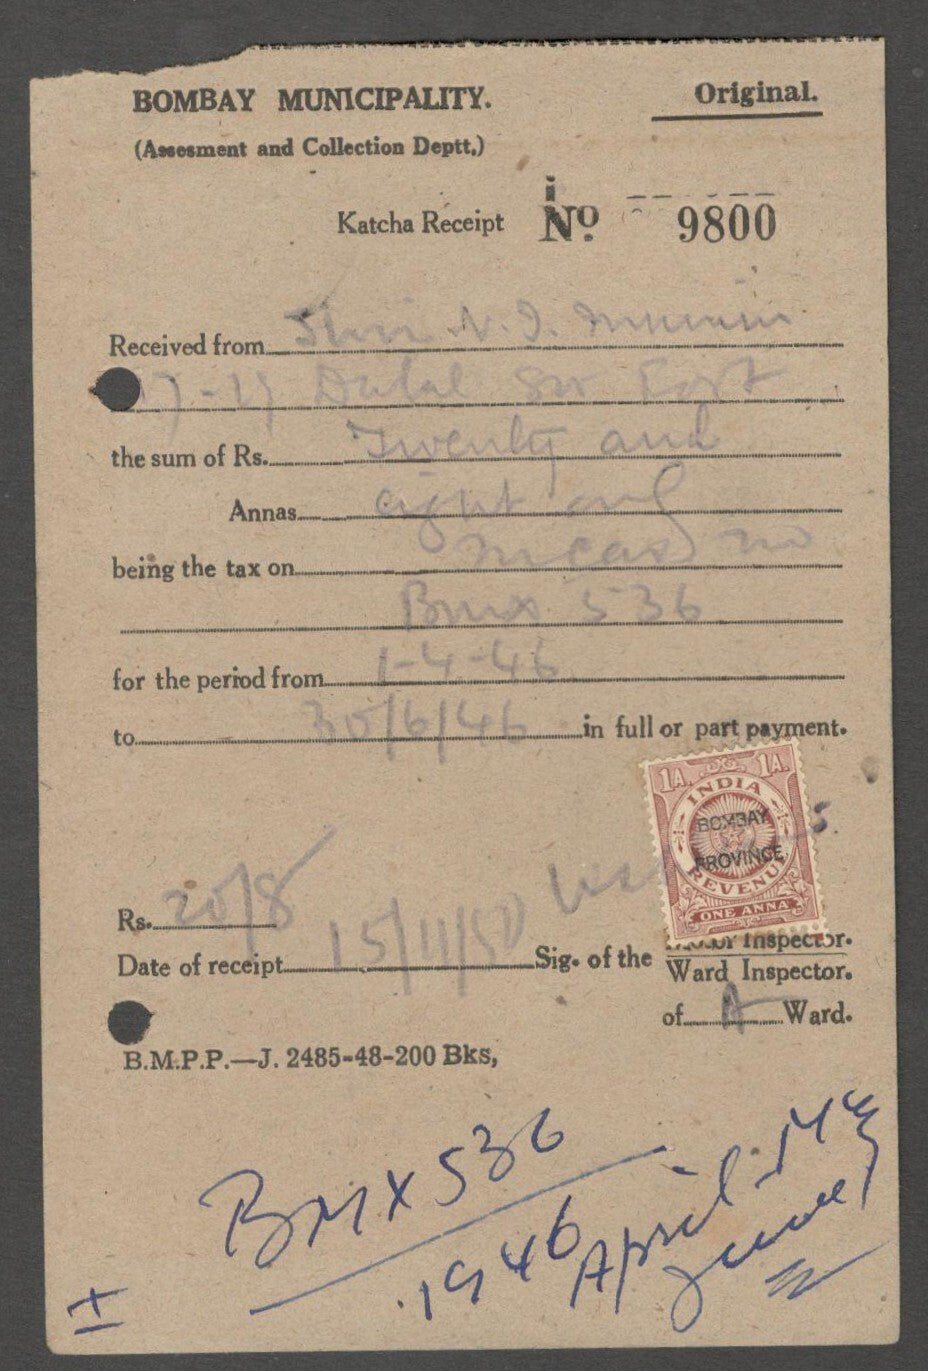 BOMBAY MUNICIPALITY.
Original.
(Assesment and Collection Deptt,)
Katcha Receipt No. 9800
Received from Shri N. J.
17-19 Dalal Fort
the sum of Rs. Twenty and
Annas eight only
being the tax on no
BMX 536
for the period from 1-4-46
to 30/6/46 in full or part payment.
1A. 1A.
INDIA
BOMBAY
PROVINCE
REVENUE
ONE ANNA
Rs. 20/8
Inspector.
Date of receipt 15/11/50 Sig. of the
Ward Inspector.
of A Ward.
B.M.P.P.—J. 2485-48-200 Bks,
BMX 536
1946 April